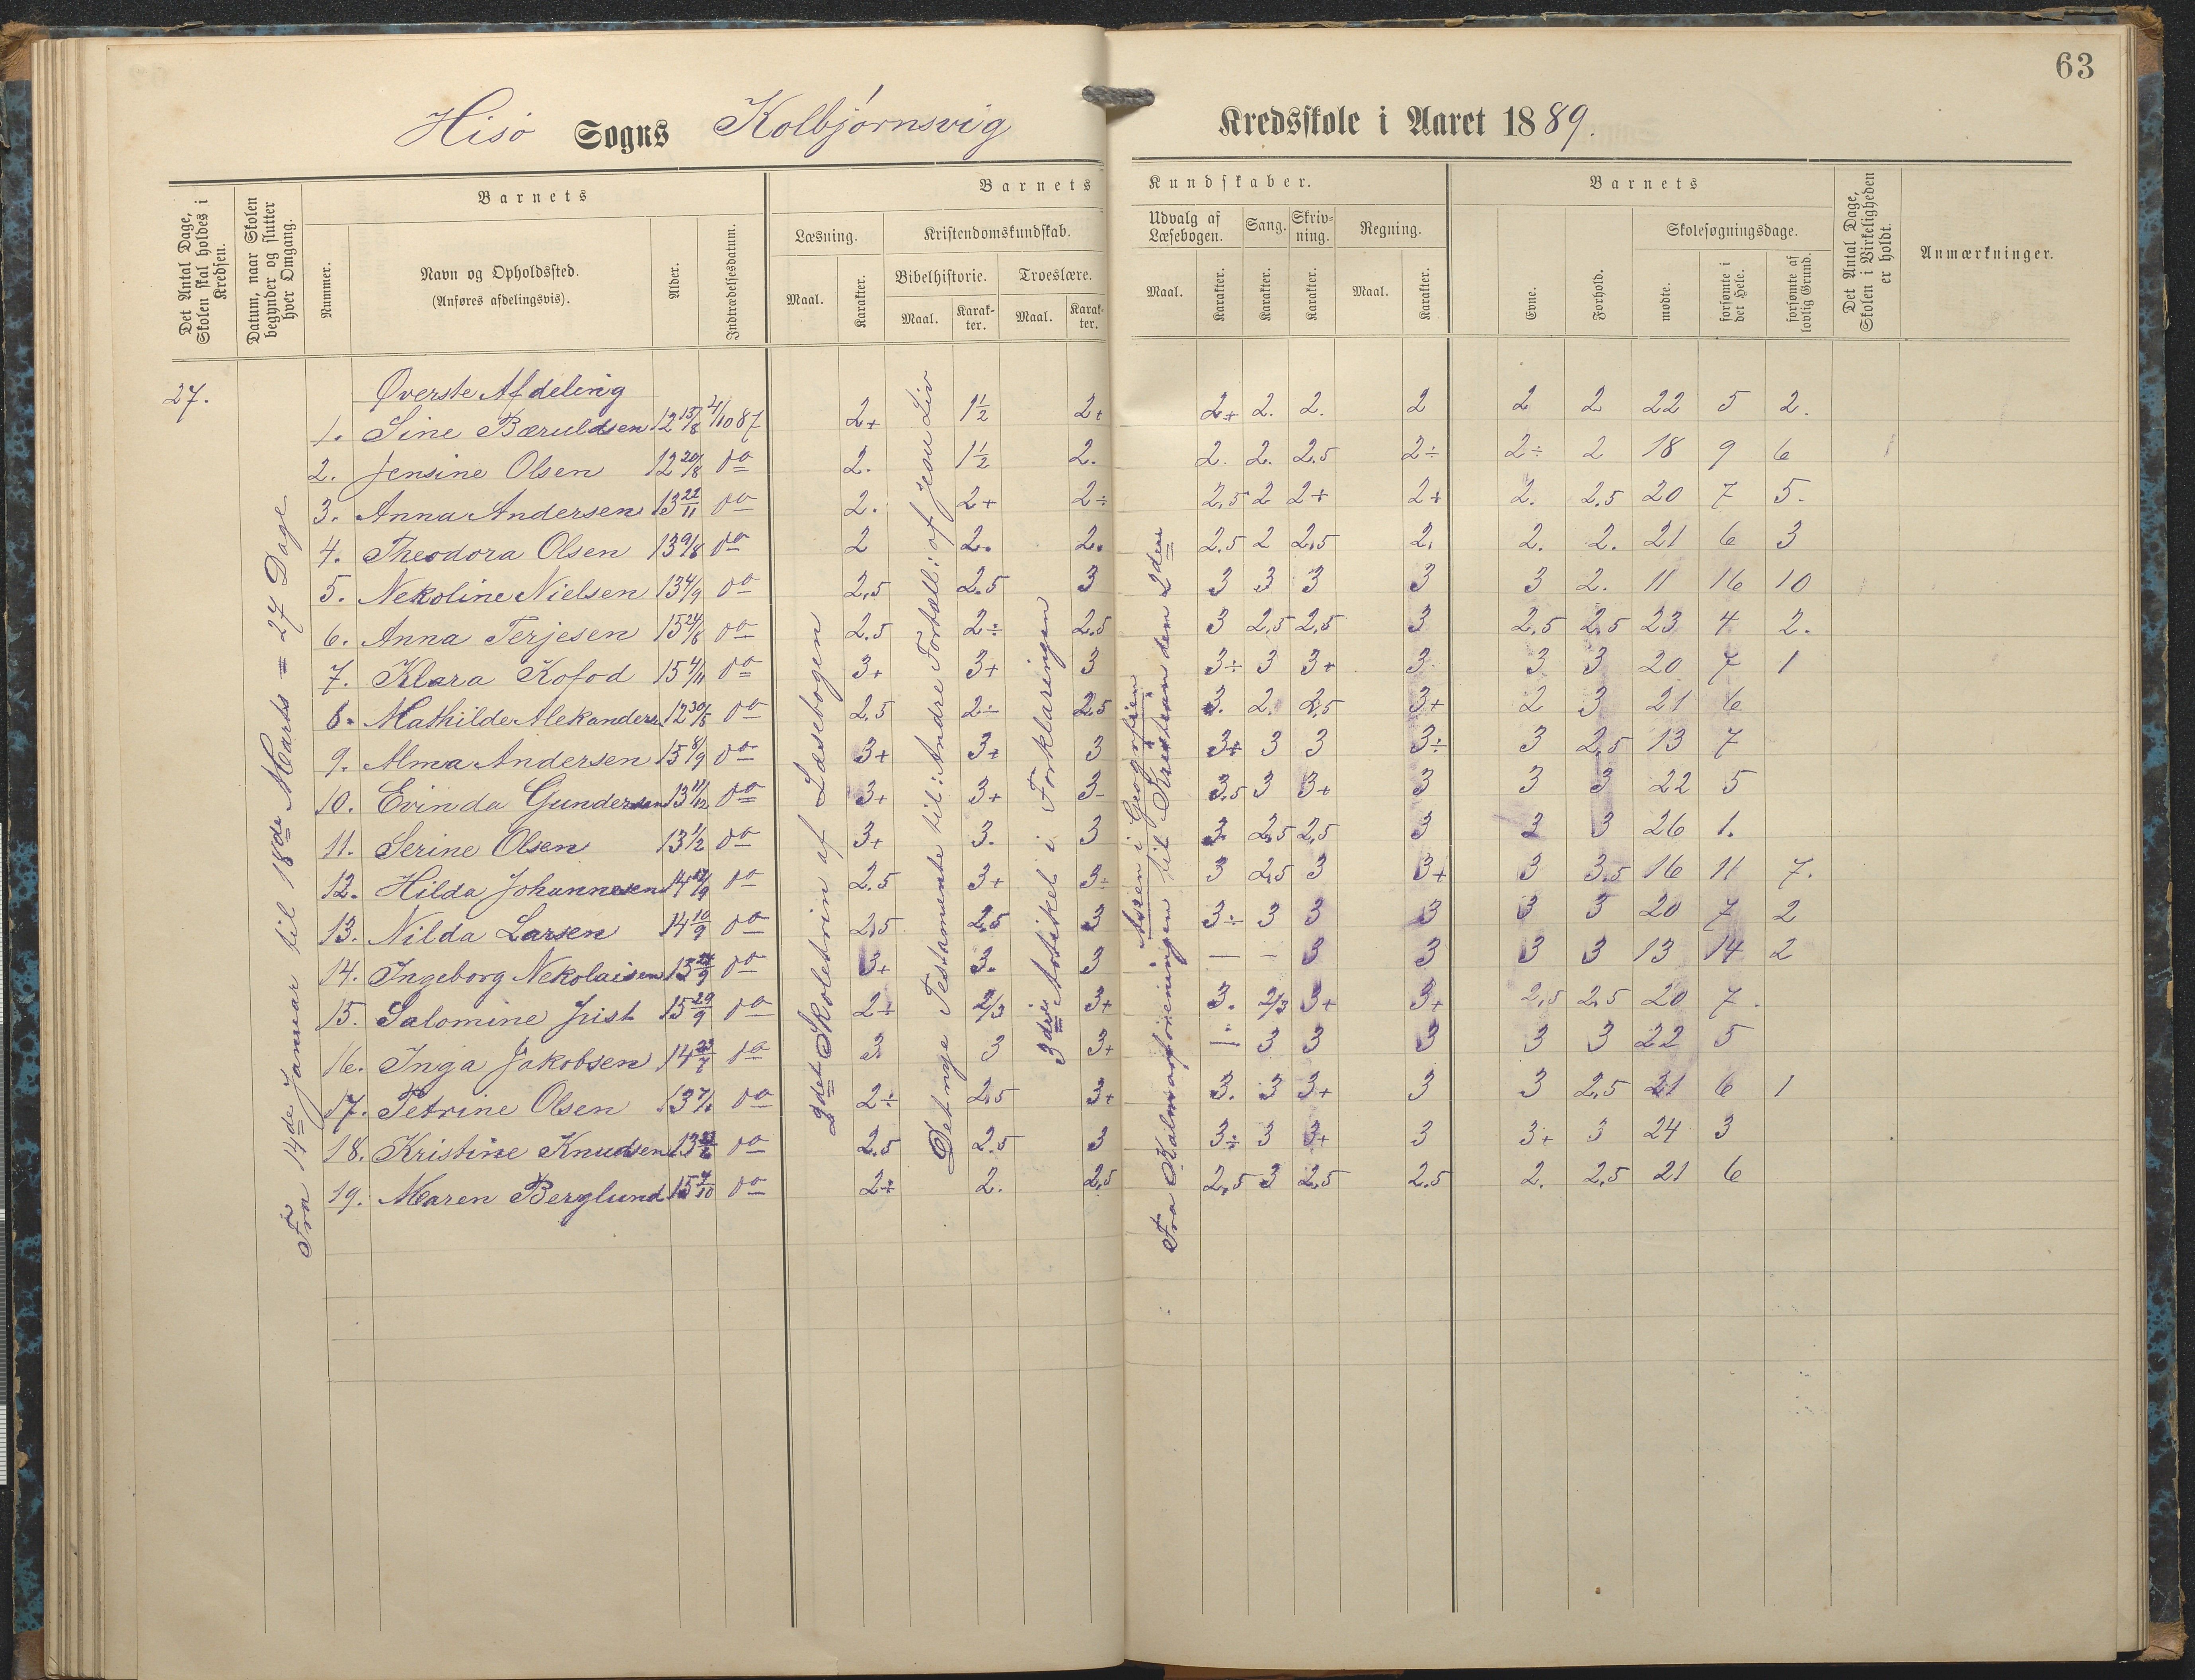 63
Hisö Sogns Kolbjørnsvig Kredsskole i Aaret 1889.
Det Antal Dage, Skolen skal holdes i Kredsen.
Datum, naar Skolen begynder og slutter hver Omgang.
Barnets
Nummer.
Navn og Opholdssted.
(Anføres afdelingsvis).
Alder.
Indtrædelsesdatum.
Barnets Kundskaber.
Læsning.
Maal.
Karakter.
Kristendomskundskab.
Bibelhistorie.
Maal.
Karakter.
Troeslære.
Maal.
Karakter.
Udvalg af Læsebogen.
Maal.
Karakter.
Sang.
Karakter.
Skrivning.
Karakter.
Regning.
Maal.
Karakter.
Barnets
Evne.
Forhold.
Skolesøgningsdage.
mødte.
forsømte i det Hele.
forsømte af lovlig Grund.
Det Antal Dage, Skolen i Virkeligheden er holdt.
Anmærkninger.
27.
Fra 14de Januar til 18de Marts = 27 Dage
2det Skoletrin af Læsebogen
Det nye Testamente til: Andre Fortæll: af Jesu Liv
3die Artikel i Forklaringen
Asien i Geografien
Fra Kalmarforeningen til Kristian den 2den
Øverste Afdeling
1. Sine Bæruldsen 12 15/8 4/10 87 2+ 1½ 2+ 2+ 2. 2. 2 2 2 22 5 2.
2. Jensine Olsen 12 20/8 do 2. 1½ 2. 2. 2. 2.5 2÷ 2÷ 2 18 9 6
3. Anna Andersen 13 22/11 do 2. 2+ 2÷ 2,5 2 2+ 2+ 2. 2.5 20 7 5.
4. Theodora Olsen 13 9/8 do 2 2. 2. 2.5 2 2.5 2. 2. 2. 21 6 3
5. Nekoline Nielsen 13 4/9 do 2,5 2.5 3 3 3 3 3 3 2. 11 16 10
6. Anna Terjesen 15 24/8 do 2.5 2÷ 2.5 3 2,5 2,5 3 2,5 2,5 23 4 2.
7. Klara Kofod 15 4/11 do 3+ 3+ 3 3÷ 3 3+ 3 3 3 20 7 1
8. Mathilde Alekanders 12 30/5 do 2.5 2÷ 2.5 3. 2. 2,5 3+ 2 3 21 6
9. Alma Andersen 15 8/9 do 3+ 3+ 3 3+ 3 3 3÷ 3 2,5 13 7
10. Evinda Gundersen 13 11/12 do 3+ 3+ 3- 3.5 3 3+ 3 3 3 22 5
11. Serine Olsen 13 1/2 do 3+ 3. 3 3. 2,5 2,5 3 3 3 26 1.
12. Hilda Johannesen 14 do 2.5 3+ 3÷ 3 2,5 3 3+ 3 3.5 16 11 7.
13. Nilda Larsen 14 10/9 do 2,5 2.5 3 3÷ 3 3 3 3 3 20 7 2
14. Ingeborg Nekolaisen 13 24/9 do 3+ 3. 3 — - 3 3 3 3 13 14 2
15. Salomine Jrist 15 29/9 do 2÷ 2/3 3+ 3. 2/3 3+ 3+ 2,5 2.5 20 7.
16. Inga Jakobsen 14 23/7 do 3 3 3+ — 3 3 3 3 3 22 5
17. Petrine Olsen 13 do 2÷ 2.5 3+ 3. 3 3+ 3 3 2,5 21 6 1
18. Kristine Knudsen 13 do 2.5 2.5 3 3÷ 3 3+ 3 3+ 3 24 3
19. Maren Berglund 15 4/10 do 2÷ 2. 2,5 2,5 3 2.5 2.5 2. 2.5 21 6